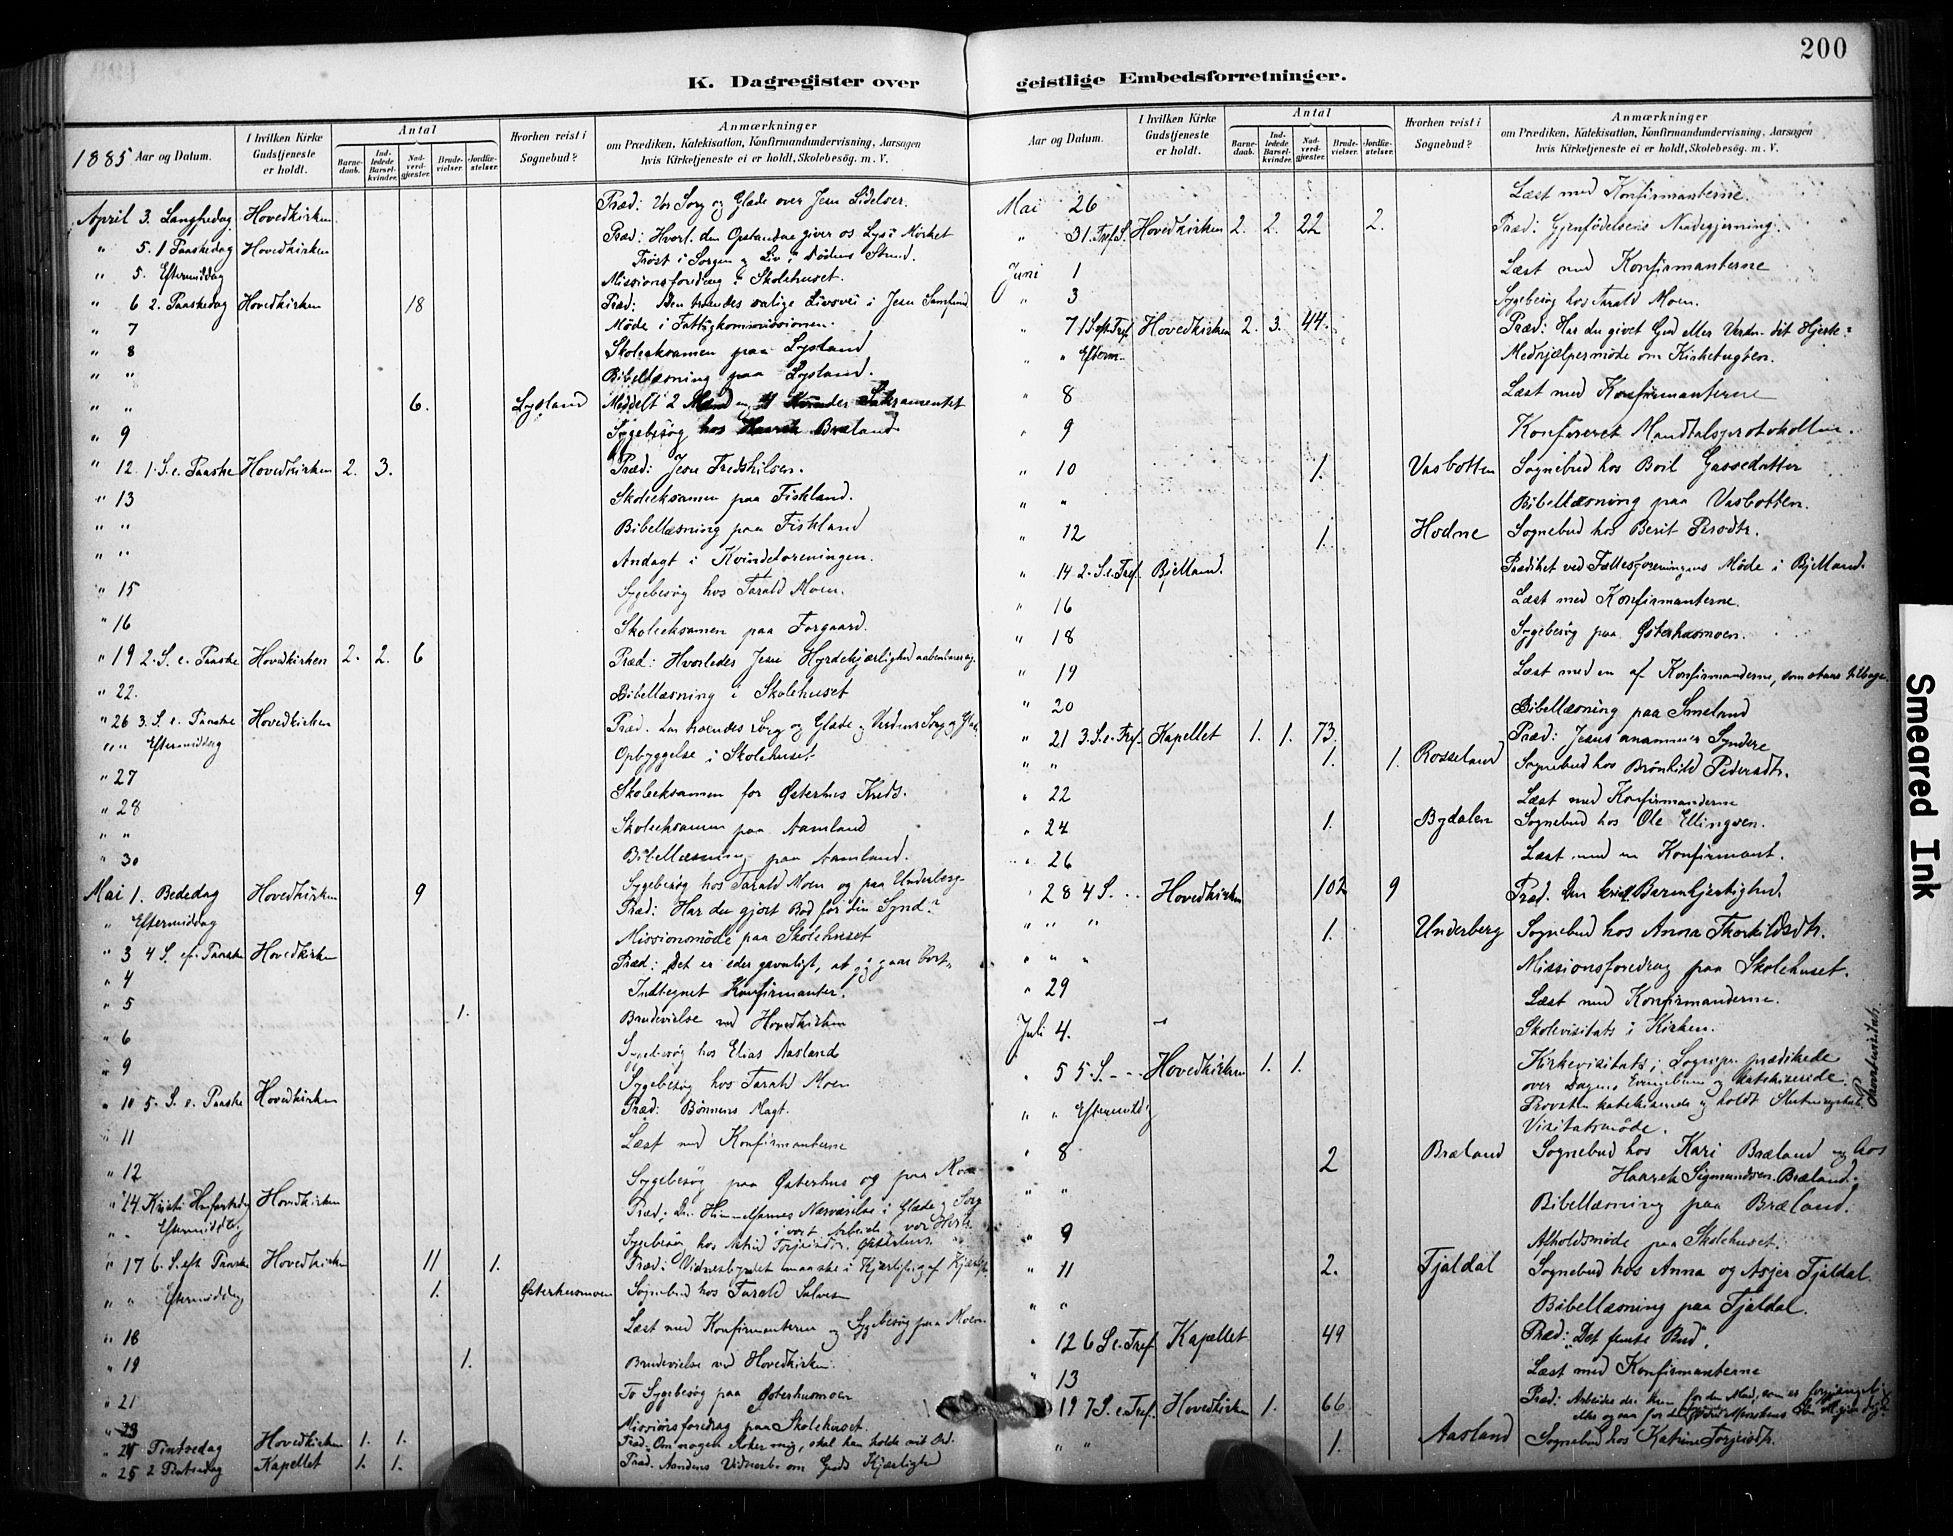 200
K. Dagregister over
geistlige Embedsforretninger.
1885 Aar og Datum.
I hvilken Kirke Gudstjeneste er holdt.
Antal
Barnedaab.
Indledede Barselkvinder.
Nadverdgjæster.
Brudevielser.
Jordfæstelser.
Hvorhen reist i Sognebud?
Anmærkninger
om Prædiken, Katekisation, Konfirmandundervisning, Aarsagen
hvis Kirketjeneste ei er holdt, Skolebesøg. m. V.
April 3. Langfredag Hovedkirken Præd: Vor Sorg og Glæde over Jesu Lidelser.
" 5. 1 Paaskedag Hovedkirken Præd: Hvorl. den Opstandne giver os Lys i Mørket
Trøst i Sorgen og Liv i Dødens Stund.
" 5. Eftermiddag Missionsforedrag i Skolehuset.
" 6 2. Paaskedag Hovedkirken 18 Præd: Den troendes salige Livsvei i Jesu Samfund
" 7 Møde i Fattigkommissionen.
" 8 Skoleeksamen paa Lysland
" " Bibellæsning paa Lysland.
" " 6. Lysland Meddelt 2 Mænd og 4 Kvinder Sakramentet
" 9 Sygebesøg hos Haarek Bræland
" 12. 1. S. e. Paaske Hovedkirken 2. 3. Præd: Jesu Fredshilsen.
" 13 Skoleeksamen paa Fiskland.
" " Bibellæsning paa Fiskland
" " Andagt i Kvindeforeningen.
" 15 Sygebesøg hos Tarald Moen.
" 16 Skoleeksamen paa Forgaard.
" 19 2. S. e. Paaske Hovedkirken 2. 2. 6 Præd: Hvorledes Jesu Hyrdekjærlighed aabenbarer sig.
" 22. Bibellæsning i Skolehuset
" 26 3. S. e. Paaske Hovedkirken Præd. troendes Sorg og Glæde og Verdens Sorg og
" " Eftermiddag Opbyggelse i Skolehuset
" 27 Skoleeksamen for Østerhus Kreds.
" 28 Skoleeksamen paa Aamland
" " Bibellæsning paa Aamland.
" 30 Sygebesøg hos Tarald Moen og paa Underberg.
Mai 1. Bededag Hovedkirken 9 Præd: Har du gjort Bod for din Synd?
" Eftermiddag Missionsmøde paa Skolehuset
" 3 4 S. ef. Paaske Hovedkirken Præd: Det er eder gavnligt, at jeg gaar bort"
" 4 Indtegnet Konfirmanter.
" 5 1. Brudevielse ved Hovedkirken
" 6 Sygebesøg hos Elias Aasland
" 9 Sygebesøg hos Tarald Moen
" 10 5. S. e. Paaske Hovedkirken Præd: Bønnens Magt.
" 11 Læst med Konfirmanterne
" 12 Sygebesøg paa Østerhus og paa Moen
" 14 Kristi Himmelfartsdag Hovedkirken Præd: Den Himmelfarnes Nærværelse i Glæde og Sorg
i vort Arbeide
" " Eftermiddag Sygebesøg hos Østerhus.
" 17 6. S. eft. Paaske Hovedkirken 11 1. Præd: Vidnesbyrdet i Kjærlighed af
" " Eftermiddag 1. Østerhusmoen Sognebud hos Tarald Salves
" 18 Læst med Konfirmanterne og Sygebesøg paa Moen.
" 19 1. Brudevielse ved Hovedkirken.
" 21 To Sygebesøg paa Østerhusmoen
" 23 Missionsforedrag paa Skolehuset.
" 24 Pintsedag Hovedkirken 1. 1. Præd. Om nogen elsker mig, skal han holde mit Ord.
" 25 2 Pintsedag Kapellet 1. 1. Præd. Aandens Vidnesb. om Guds Kjærlighed
Aar og Datum.
I hvilken Kirke Gudstjeneste er holdt.
Antal
Barnedaab.
Indledede Barselkvinder.
Nadverdgjæster.
Brudevielser.
Jordfæstelser.
Hvorhen reist i Sognebud?
Anmærkninger
om Prædiken, Katekisation, Konfirmandundervisning, Aarsagen
hvis Kirketjeneste ei er holdt, Skolebesøg. m. V.
Mai 26 Læst med Konfirmanterne.
" 31. Tref. S. Hovedkirken 2. 2. 22 2. Præd: Gjenfødelsens Naadegjerning.
Juni 1 Læst med Konfirmanterne
" 3 Sygebesøg hos Tarald Moen.
" 7 1 S. eft Tref. Hovedkirken 2. 3. 44. Præd: Har du givet Gud eller Verden dit Hjerte?
" " Efterm. Medhjælpermøde om Kirketugten.
" 8 Læst med Konfirmanterne
" 9 Konfereret Mandtalsprotokollen.
" 10 1. Vasbotten Sognebud hos Boil Gassedatter
" " Bibellæsning paa Vasbotten.
" 12 1. Hodne Sognebud hos Berit Persdtr.
" 14 2. S. e. Tref. Bjelland. Prædiket ved Fællesforeningens Møde i Bjelland.
" 16 Læst med Konfirmanterne.
" 18 Sygebesøg paa Østerhusmoen.
" 19 Læst med en af Konfirmanderne, som staar tilbage.
" 20 Bibellæsning paa Smeland
" 21 3. S. e. Tref. Kapellet 1. 1. 73. Præd: Jesus anammer Syndere
" " 1. 1. Rosseland Sognebud hos Brønhild Pedersdtr.
" 22 Læst med Konfirmanderne
" 24 1. Bydalen Sognebud hos Ole Ellingsen.
" 26 Læst med en Konfirmant.
" 28 4 S. - - Hovedkirken 102 9 Præd. Den Barmhjertighed.
" " " 1. Underberg Sognebud hos Anna Thorkildsdtr.
" " " Missionsforedrag paa Skolehuset.
" 29 Læst med Konfirmanderne.
Juli 4. Skolevisitats i Kirken.
" 5 5 S. - - Hovedkirken 1. 1. Kirkevisitats; Sognepr. prædikede
over Dagens Evangelium og katekiserede.
Provsten katekiserede og holdt Slutningstale.
Provstevisitats.
" " Eftermiddag Visitatsmøde.
" 8 2 Bræland Sognebud hos Kari Bræland og hos
Haarek Sigmundsen Bræland.
" " Bibellæsning paa Bræland.
" 9 Afholdsmøde paa Skolehuset.
" 11 2. Fjaldal Sognebud hos Anna og Asjer Fjaldal.
" " Bibellæsning paa Fjaldal.
" 12 6 S. e. Tref. Kapellet 49 Præd: "Det femte Bud".
" 13 Læst med Konfirmanterne
" 19 7 S. e. Tref. Hovedkirken 1. 66 Præd: Arbeider der kun for den Mad, som er forgjængelig
ikke ogsaa for den
" " 1. Aasland Sognebud hos Katrine Torjeisdtr.
Smeared Ink